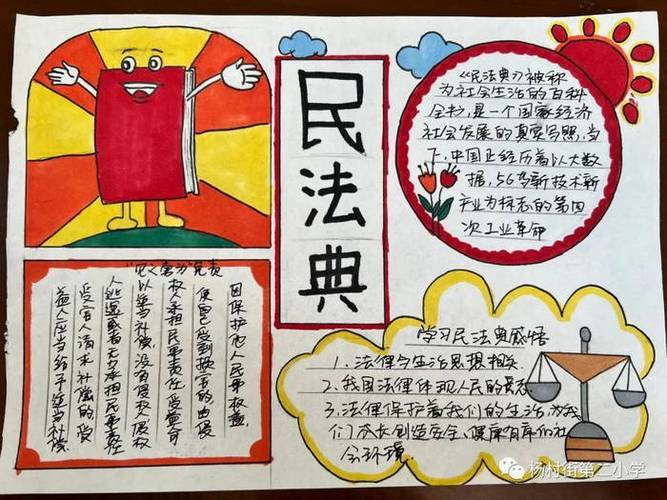 民法典
《民法典》被称
为社会生活的百科
全书,是一个国家经济
社会发展的真实写照,当
下,中国正经历着以大数
据,5G等新技术新
产业为标志的第四
次工业革命
"见义勇为"免责
因保护他人民事权益
使自己受到损害的,由侵
权人承担民事责任,受益
可以适当补偿。没有侵权人、侵权
人逃逸或者无力承担民事责任
受害人请求补偿的,受
益人应当给予适当补偿
学习民法典感悟
1、法律与生活思想相关
2、我国法律体现人民的
3、法律保护着我们的生活,为我
们成长创造安全、健康有序的社
会环境。
杨村街第二小学